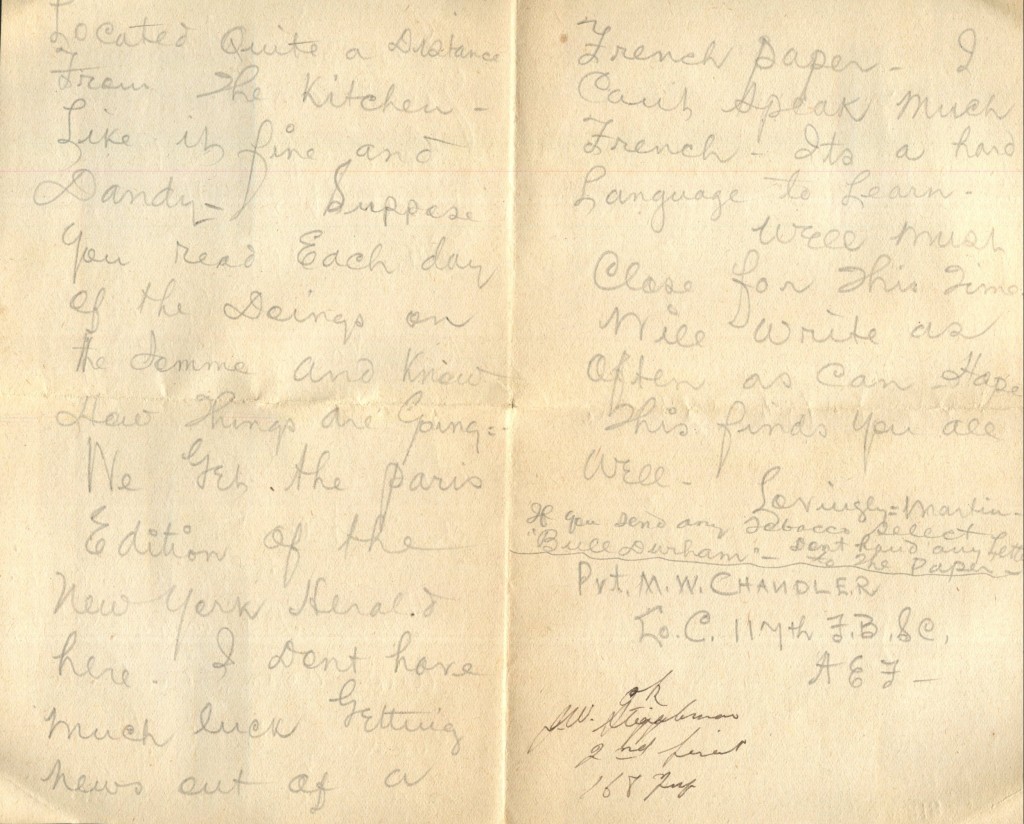 Located Quite a Distance
From The Kitchen -
Like it fine and
Dandy - Suppose
you read Each day
of the Doings on
the and Know
How Things are Going =
We Get the paris
Edition of the
New York Herald
here. I Dont have
much luck Getting
news out of a
French paper - I
Cant Speak Much
French - Its a hard
Language to Learn -
Well Must
Close for This Time
Will Write as
Often as Can Hope
This finds you all
Well -
Lovingly = Martin -
If you send any Tobacco select
"Bull Durham" - Dont hand any
to The Paper -
Pvt. M. W. CHANDLER
Co. C. 117th F. B. SC.
A E F -
OK
2nd Lieut
168 Inf